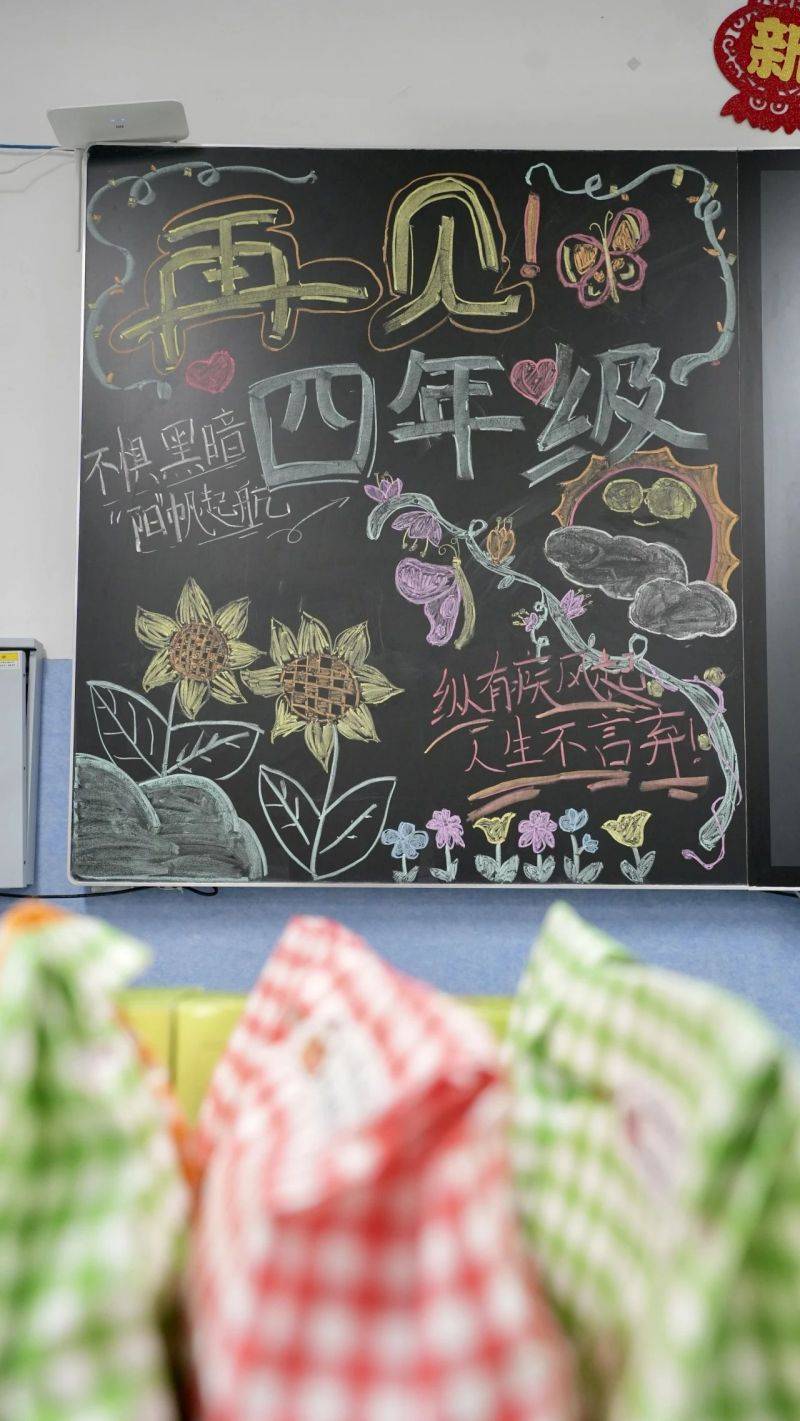 新
再见!
四年级
不惧黑暗
"阳"帆起航
纵有疾风起
人生不言弃!